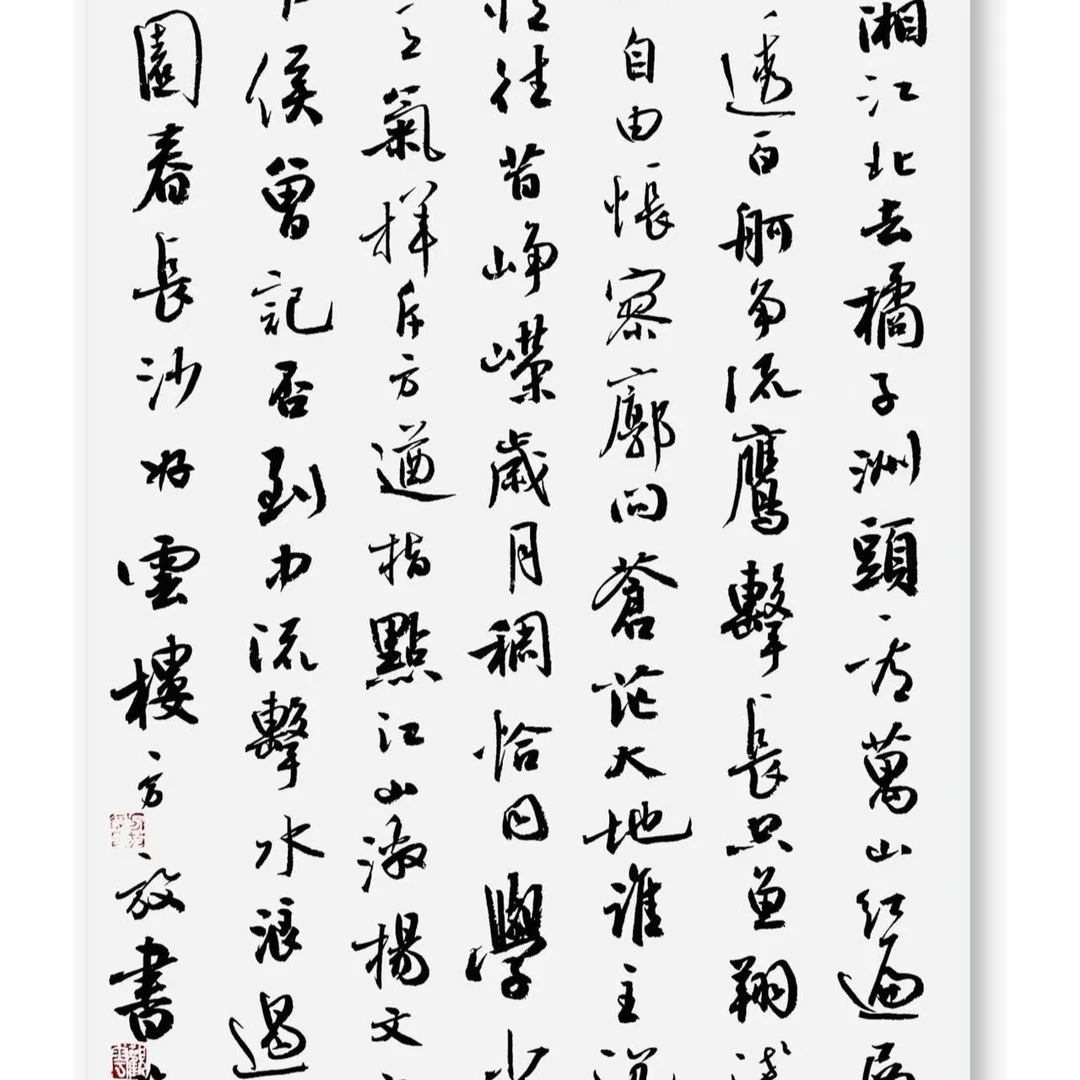 湘江北去橘子洲頭看萬山紅遍
透百舸争流鷹擊長空魚翔淺
自由悵寥廓問蒼茫大地誰主沉
往昔崢嶸歲月稠恰同學少
氣揮斥方遒指點江山激揚文
侯曾記否到中流擊水浪遏
園春長沙好雲樓方放書